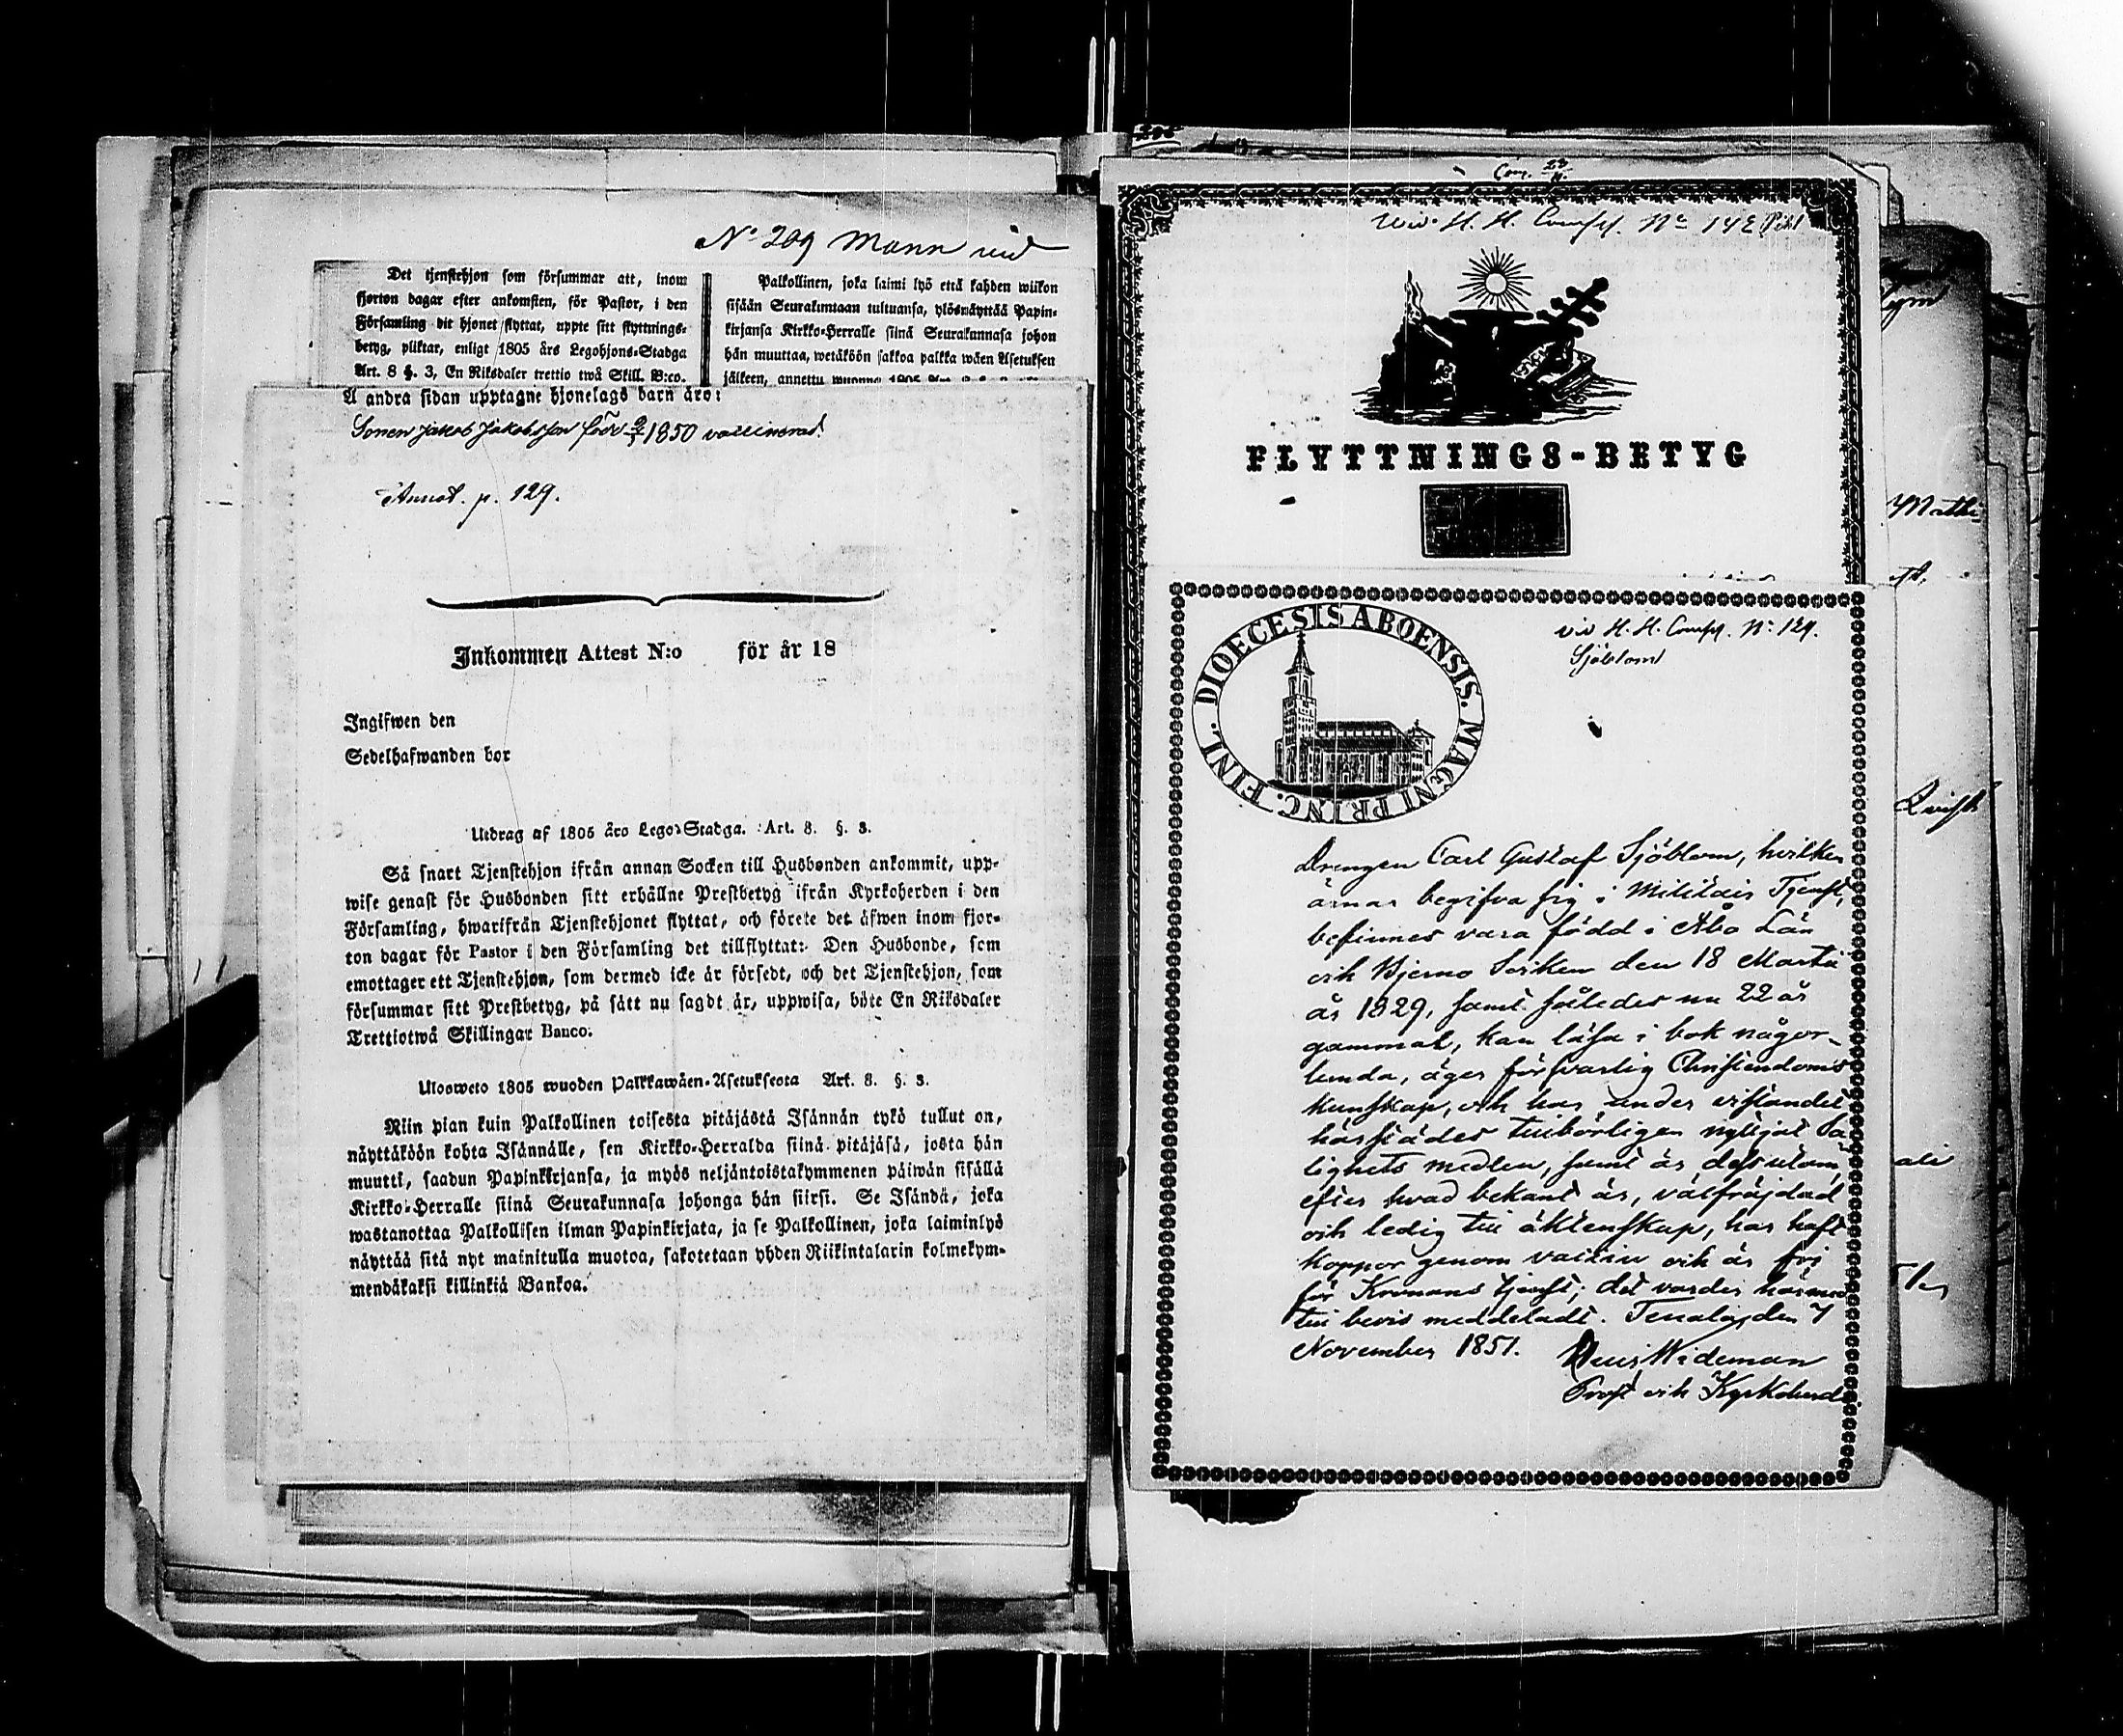 No 209 Mann vid
Det tjenstehjon som försummar att, inom
fjorton dagar efter ankomsten, för Pastor, i den
Församling dit hjonet flyttat, uppte sitt flyttnings-
betyg, pliktar, enligt 1805 års Legohjons-Stadga
Art. 8 §. 3, En Riksdaler trettio twå Skill. B:co.
Palkollinen, joka laimi lyö että kahden wiikon
sisään Seurakuntaan tultuansa, ylösnäyttää Papin-
kirjansa Kirkko-Herralle siinä Seurakunnasa johon
hän muuttaa, wetäköön sakkoa palkka wäen Asetuksen
jälkeen, annettu wuonna 1805
Å andra sidan upptagne hjonelags barn äro:
Sonen Jakob Jakobsson född 1850 vaccinerad.
Annot. p. 129.
Inkommen Attest N:o för år 18
Ingifwen den
Sedelhafwanden bor
Utdrag af 1805 års Lego-Stadga. Art. 8. §. 3.
Så snart Tjenstehjon ifrån annan Socken till Husbonden ankommit, upp-
wise genast för Husbonden sitt erhållne Prestbetyg ifrån Kyrkoherden i den
Församling, hwarifrån Tjenstehjonet flyttat, och förete det äfwen inom fjor-
ton dagar för Pastor i den Församling det tillflyttat: Den Husbonde, som
emottager ett Tjenstehjon, som dermed icke är försedt, och det Tjenstehjon, som
försummar sitt Prestbetyg, på sätt nu sagdt är, uppwisa, böte En Riksdaler
Trettiotwå Skillingar Banco.
Ulosweto 1805 wuoden Palkkawäen-Asetuksesta Art. 8. §. 3.
Niin pian kuin Palkollinen toisesta pitäjästä Isännän tykö tullut on,
näyttäköön kohta Isännälle, sen Kirkko-Herralda siinä pitäjäsä, josta hän
muutti, saadun Papinkirjansa, ja myös neljäntoistakymmenen päiwän sisällä
Kirkko-Herralle siinä Seurakunnasa johonga hän siirsi. Se Isändä, joka
wastanottaa Palkollisen ilman Papinkirjata, ja se Palkollinen, joka laiminlyö
näyttää sitä nyt mainitulla muotoa, sakotetaan yhden Riikintalarin kolmekym-
mendäkaksi killinkiä Bankoa.
Vid H. H. Compl. No 142
FLYTTNINGS-BETYG
DIOECESIS ABOENSIS. MAGNI PRINC. FINL.
vid H. H. Compl. No 129.
Sjöblom
Drengen Carl Gustaf Sjöblom, hvilken
ärnar begifva sig i Militair Tjenst,
befinnes vara född i Åbo Län
och Bjerno Socken den 18 Martii
år 1829, samt således nu 22 år
gammal, kan läsa i bok någor-
lunda, äger försvarlig Christendoms
kunskap, och har under vistandet
härstädes tillbörligen nyttjat Sa
lighets medlen, samt är dessutom,
efter hvad bekant är, välfräjdad
och ledig till äktenskap, har haft
koppor genom vaccin och är fri
för Kronans tjenst; det varder härmed
till bevis meddeladt. Tenala, den 7
November 1851.
Wideman
Prost och Kyrkoherde
Mathi
Qvist